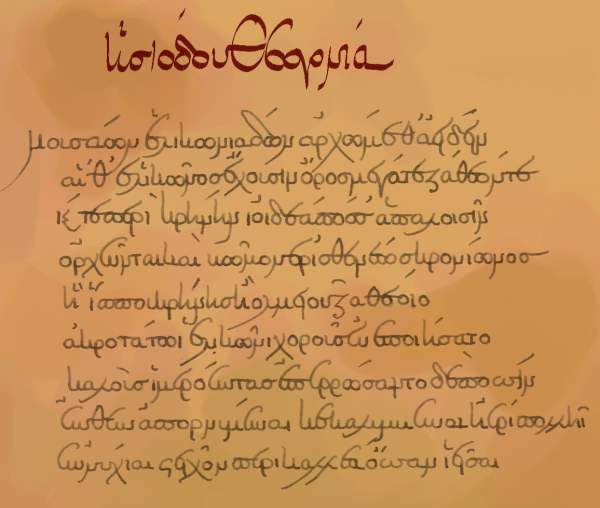 Ἡσιόδου Θεογονία
μουσάων ἑλικωνιάδων ἀρχώμεθ᾽ ἀείδειν
αἵ θ᾽ ἑλικῶνος ἔχουσιν ὄρος μέγα τε ζάθεόν τε
καί τε περὶ κρήνην ἰοειδέα πόσσ᾽ ἁπαλοῖσιν
ὀρχεῦνται καὶ βωμὸν ἐρισθενέος κρονίωνος
ἢ ἵππου κρήνης ἢ ὀλμειοῦ ζαθέοιο
ἀκροτάτῳ ἑλικῶνι χοροὺς ἐνεποιήσαντο
καλοὺς ἱμερόεντας ἐπερρώσαντο δὲ ποσσίν
ἔνθεν ἀπορνύμεναι κεκαλυμμέναι ἠέρι πολλῇ
ἐννύχιαι στεῖχον περικαλλέα ὄσσαν ἱεῖσαι